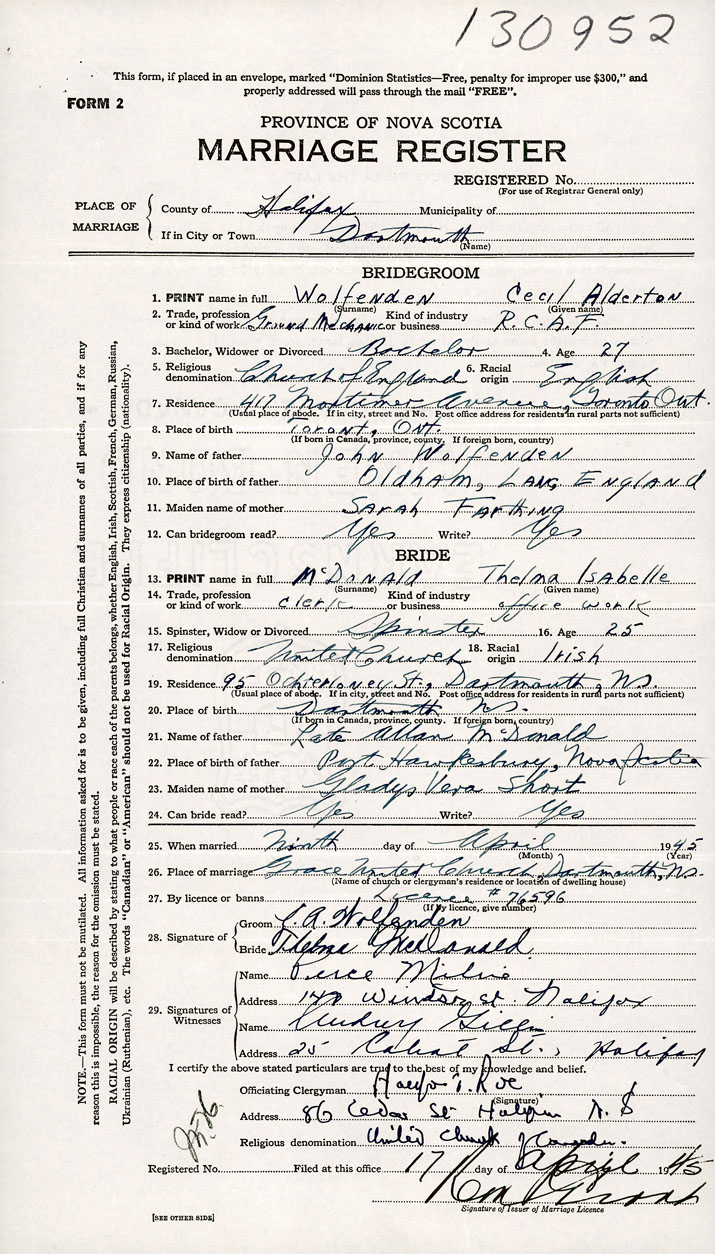 130952
This form, if placed in an envelope, marked "Dominion Statistics—Free, penalty for improper use $300," and
properly addressed will pass through the mail "FREE".
FORM 2
PROVINCE OF NOVA SCOTIA
MARRIAGE REGISTER
REGISTERED No.
(For use of Registrar General only)
PLACE OF MARRIAGE
County of Halifax Municipality of
If in City or Town Dartmouth
(Name)
BRIDEGROOM
1. PRINT name in full Wolfenden Cecil Alderton
(Surname) (Given name)
2. Trade, profession or kind of work Ground Mechanic Kind of industry or business R.C.A.F.
3. Bachelor, Widower or Divorced Bachelor 4. Age 27
5. Religious denomination Church of England 6. Racial origin English
7. Residence 417 Mortimer Avenue, Toronto Ont.
(Usual place of abode. If in city, street and No. Post office address for residents in rural parts not sufficient)
8. Place of birth Toronto, Ont.
(If born in Canada, province, county. If foreign born, country)
9. Name of father John Wolfenden
10. Place of birth of father Oldham, Lanc, England
11. Maiden name of mother Sarah Farthing
12. Can bridegroom read? Yes Write? Yes
BRIDE
13. PRINT name in full McDonald Thelma Isabelle
(Surname) (Given name)
14. Trade, profession or kind of work clerk Kind of industry or business office work
15. Spinster, Widow or Divorced Spinster 16. Age 25
17. Religious denomination United Church 18. Racial origin Irish
19. Residence 95 Ochterloney St., Dartmouth, N.S.
(Usual place of abode. If in city, street and No. Post office address for residents in rural parts not sufficient)
20. Place of birth Dartmouth N.S.
(If born in Canada, province, county. If foreign born, country)
21. Name of father Late Allan McDonald
22. Place of birth of father Port Hawkesbury, Nova Scotia
23. Maiden name of mother Gladys Vera Short
24. Can bride read? Yes Write? Yes
25. When married Ninth day of April 1945
(Month) (Year)
26. Place of marriage Grace United Church, Dartmouth, N.S.
(Name of church or clergyman's residence or location of dwelling house)
27. By licence or banns Licence # 76596
(If by licence, give number)
28. Signature of
Groom C. A. Wolfenden
Bride Thelma McDonald
29. Signatures of Witnesses
Name Milne
Address Windsor St. Halifax
Name Audrey
Address 25 St., Halifax
I certify the above stated particulars are true to the best of my knowledge and belief.
Officiating Clergyman T. Roe
(Signature)
Address 86 Cedar St Halifax N.S
Religious denomination United Church of Canada.
Registered No. Filed at this office 17 day of April 1945
Signature of Issuer of Marriage Licence
[SEE OTHER SIDE]
NOTE.—This form must not be mutilated. All information asked for is to be given, including full Christian and surnames of all parties, and if for any
reason this is impossible, the reason for the omission must be stated.
RACIAL ORIGIN will be described by stating to what people or race each of the parents belongs, whether English, Irish, Scottish, French, German, Russian,
Ukrainian (Ruthenian), etc. The words "Canadian" or "American" should not be used for Racial Origin. They express citizenship (nationality).